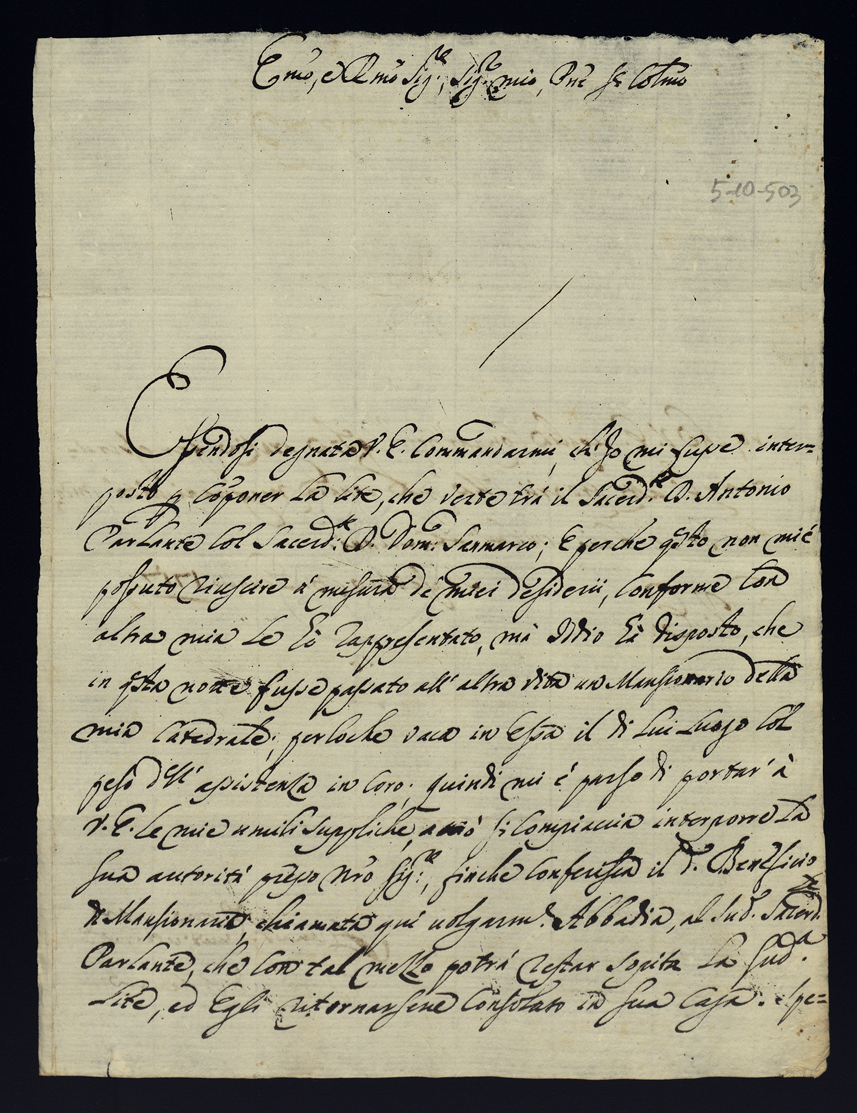 Emo, e Rmo Sig.re, Sig.re mio, Pne Colmo
5-10-503
Essendosi degnata V. E. Commandarmi, ch'Io mi fusse inter=
posto p Componer la lite, che verte trà il Sacerd.te D. Antonio
Parlante col Sacerd.te D. Dom.co Sanmarco; E perche qsto non mi é
possuto riuscire á misura de' miei desiderii, Conforme Con
altra mia Le hò rappresentato, má Iddio hà disposto, che
in qsta notte fusse passato all'altra vita un Mansionario della
mia Catedrale; perloche vaca in Essa il di Lui Luogo Col
peso dell'assistenza in Coro; quindi mi é parso di portar' à
V. E. le mie umili suppliche, acciò si Compiaccia interporre La
sua autoritá presso Nro Sig.re, finche Conferisca il d.o Beneficio
di Mansionario, chiamata quì volgarm.te Abbadia, al sud.o Sacerd.te
Parlante, che Con tal mezzo potrá restar sopita La sud.a
Lite, ed Egli ritornarsene Consolato in sua Casa. Spe=